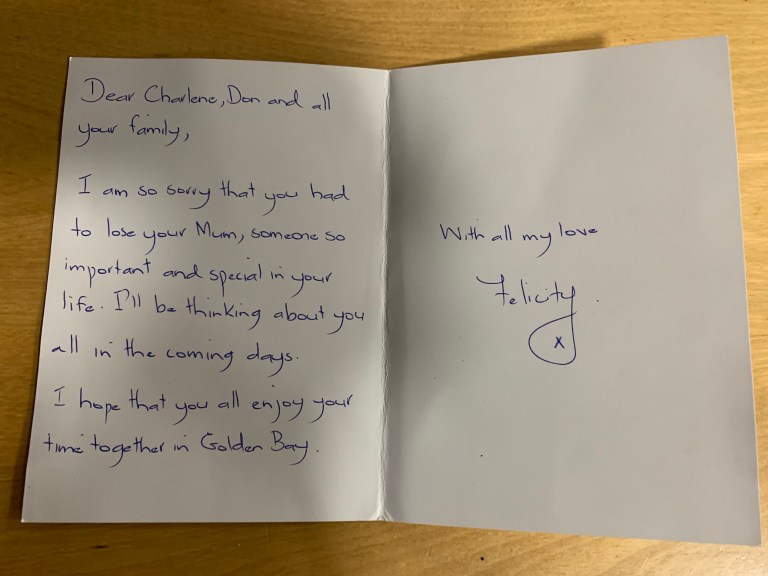 Dear Charlene, Don and all
your family,
I am so sorry that you had
to lose your Mum, someone so
important and special in your
life. I'll be thinking about you
all in the coming days.
I hope that you all enjoy your
time together in Golden Bay.
With all my love
Felicity.
x